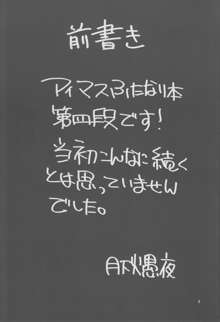 前書き
アイマスふたなり本
第四段です!
当初こんなに続く
とは思っていません
でした。
月下愚夜